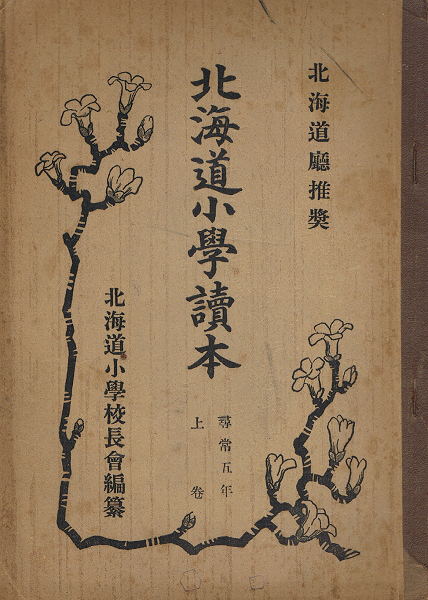 北海道廳推奬
北海道小學讀本
尋常五年
上卷
北海道小學校長會編纂